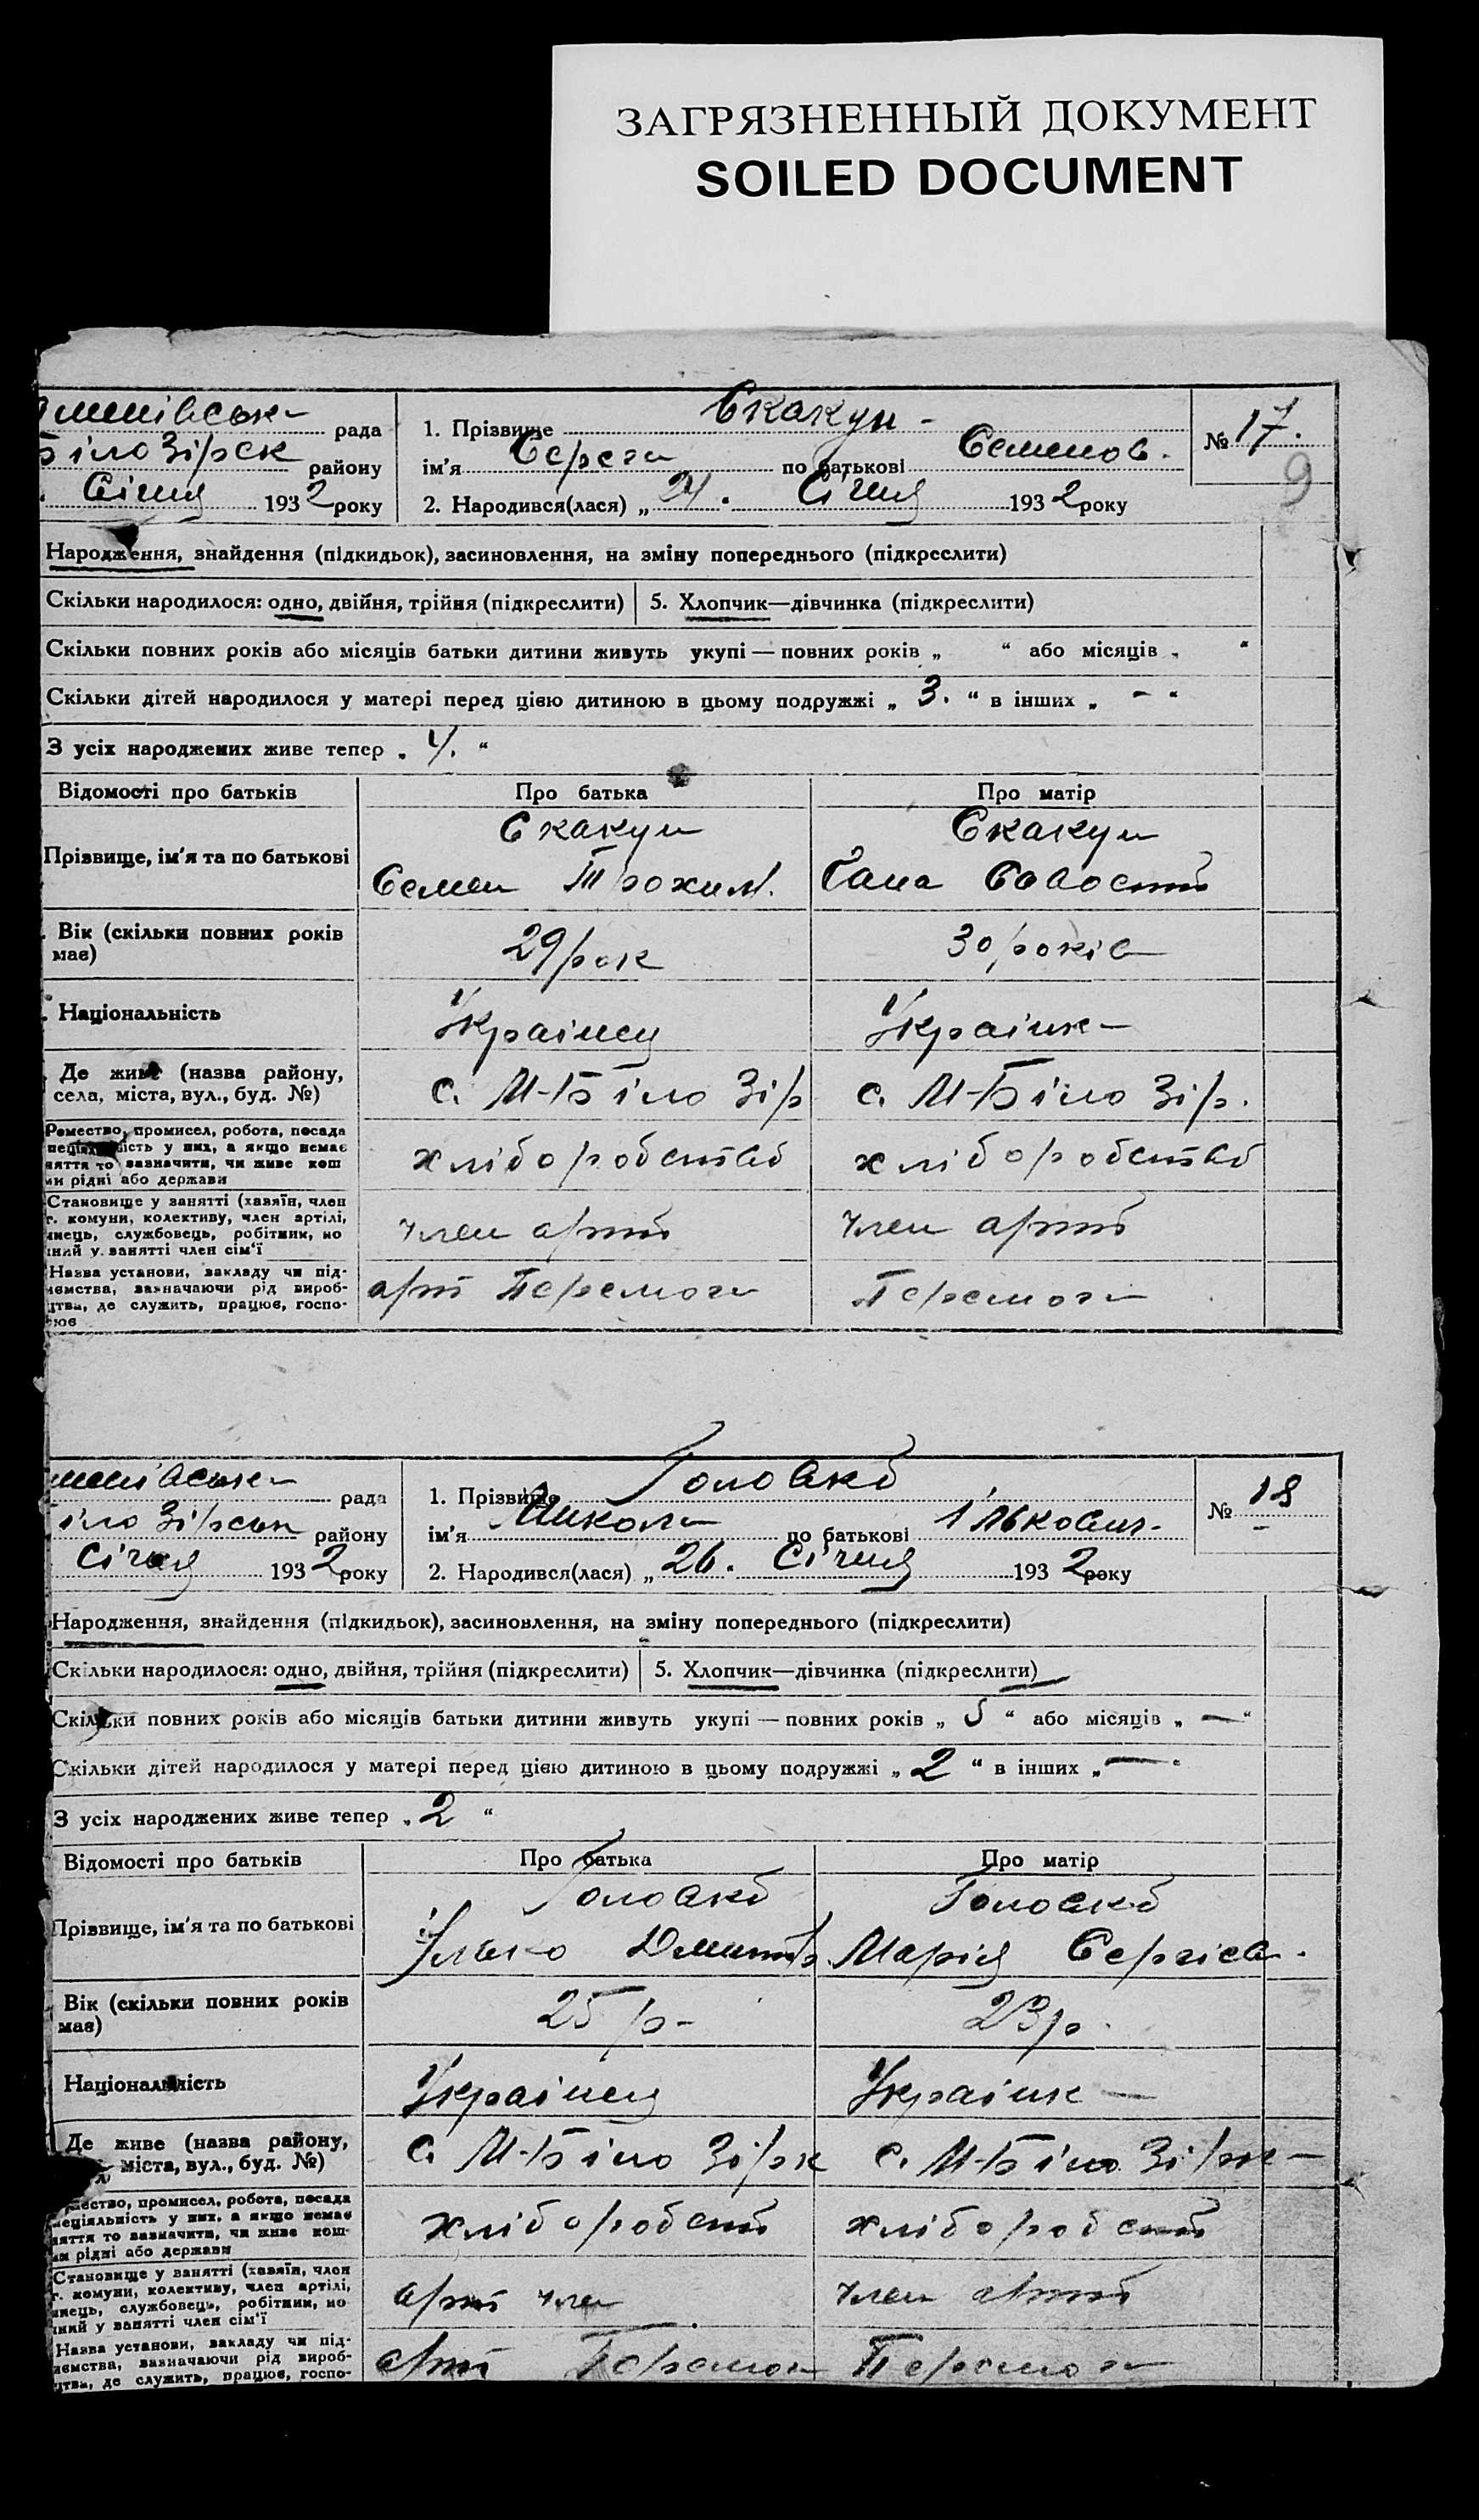 ЗАГРЯЗНЕННЫЙ ДОКУМЕНТ
SOILED DOCUMENT
рада
Біло Зірск району
Січня 1932 року
1. Прізвище Скакун
ім'я Серега по батькові Семенов.
2. Народився(лася) „ 24. Січня 1932 року
№ 17.
9
Народження, знайдення (підкидьок), засиновлення, на зміну попереднього (підкреслити)
Скільки народилося: одно, двійня, трійня (підкреслити)
5. Хлопчик—дівчинка (підкреслити)
Скільки повних років або місяців батьки дитини живуть укупі — повних років „ “ або місяців „ “
Скільки дітей народилося у матері перед цією дитиною в цьому подружжі „ 3. “ в інших „ – “
З усіх народжених живе тепер „ 4. “
Відомості про батьків Про батька Про матір
Скакун Скакун
Прізвище, ім'я та по батькові
Семен Трохим. Савост
Вік (скільки повних років має) 29 рок 30 років
Національність Українец Українк
Де живе (назва району,
села, міста, вул., буд. №)
с. М-Біло Зір с. М-Біло Зір.
Ремество, промисел, робота, посада
ість у них, а якщо немає
няття то зазначити, чи живе кош
ми рідні або держави
хліборобств хліборобств
Становище у занятті (хазяїн, член
г. комуни, колективу, член артілі,
инець, службовець, робітник, по
жний у занятті член сім'ї
член арт член арт
Назва установи, закладу чи під-
ємства, зазначаючи рід вироб-
цтва, де служить, працює, госпо-
рює
арт Перемога Перемога
рада
іло Зірськ району
Січня 1932 року
1. Прізвище Головко
ім'я Микола по батьковіІлькович.
2. Народився(лася) „ 26. Січня 1932 року
№ 18
Народження, знайдення (підкидьок), засиновлення, на зміну попереднього (підкреслити)
Скільки народилося: одно, двійня, трійня (підкреслити)
5. Хлопчик—дівчинка (підкреслити)
Скільки повних років або місяців батьки дитини живуть укупі — повних років „ 5 “ або місяців „ — “
Скільки дітей народилося у матері перед цією дитиною в цьому подружжі „ 2 “ в інших „ — “
З усіх народжених живе тепер „ 2 “
Відомості про батьків Про батька Про матір
Головко Головко
Прізвище, ім'я та по батькові
Ілько Дмитр. Марія Сергієв.
Вік (скільки повних років має) 25 р- 23 р.
Національність Українец Українк
Де живе (назва району,
міста, вул., буд. №)
с. М-Біло Зірк с. М-Біло Зірк
ество, промисел, робота, посада
пеціяльність у них, а якщо немає
няття то зазначити, чи живе кош-
ми рідні або держави
хліборобст хліборобст
Становище у занятті (хазяїн, член
г. комуни, колективу, член артілі,
инець, службовець, робітник, по
жний у занятті член сім'ї
арт член член арт
Назва установи, закладу чи під-
ємства, зазначаючи рід вироб-
цтва, де служить, працює, госпо-
Арт Перемога Перемога